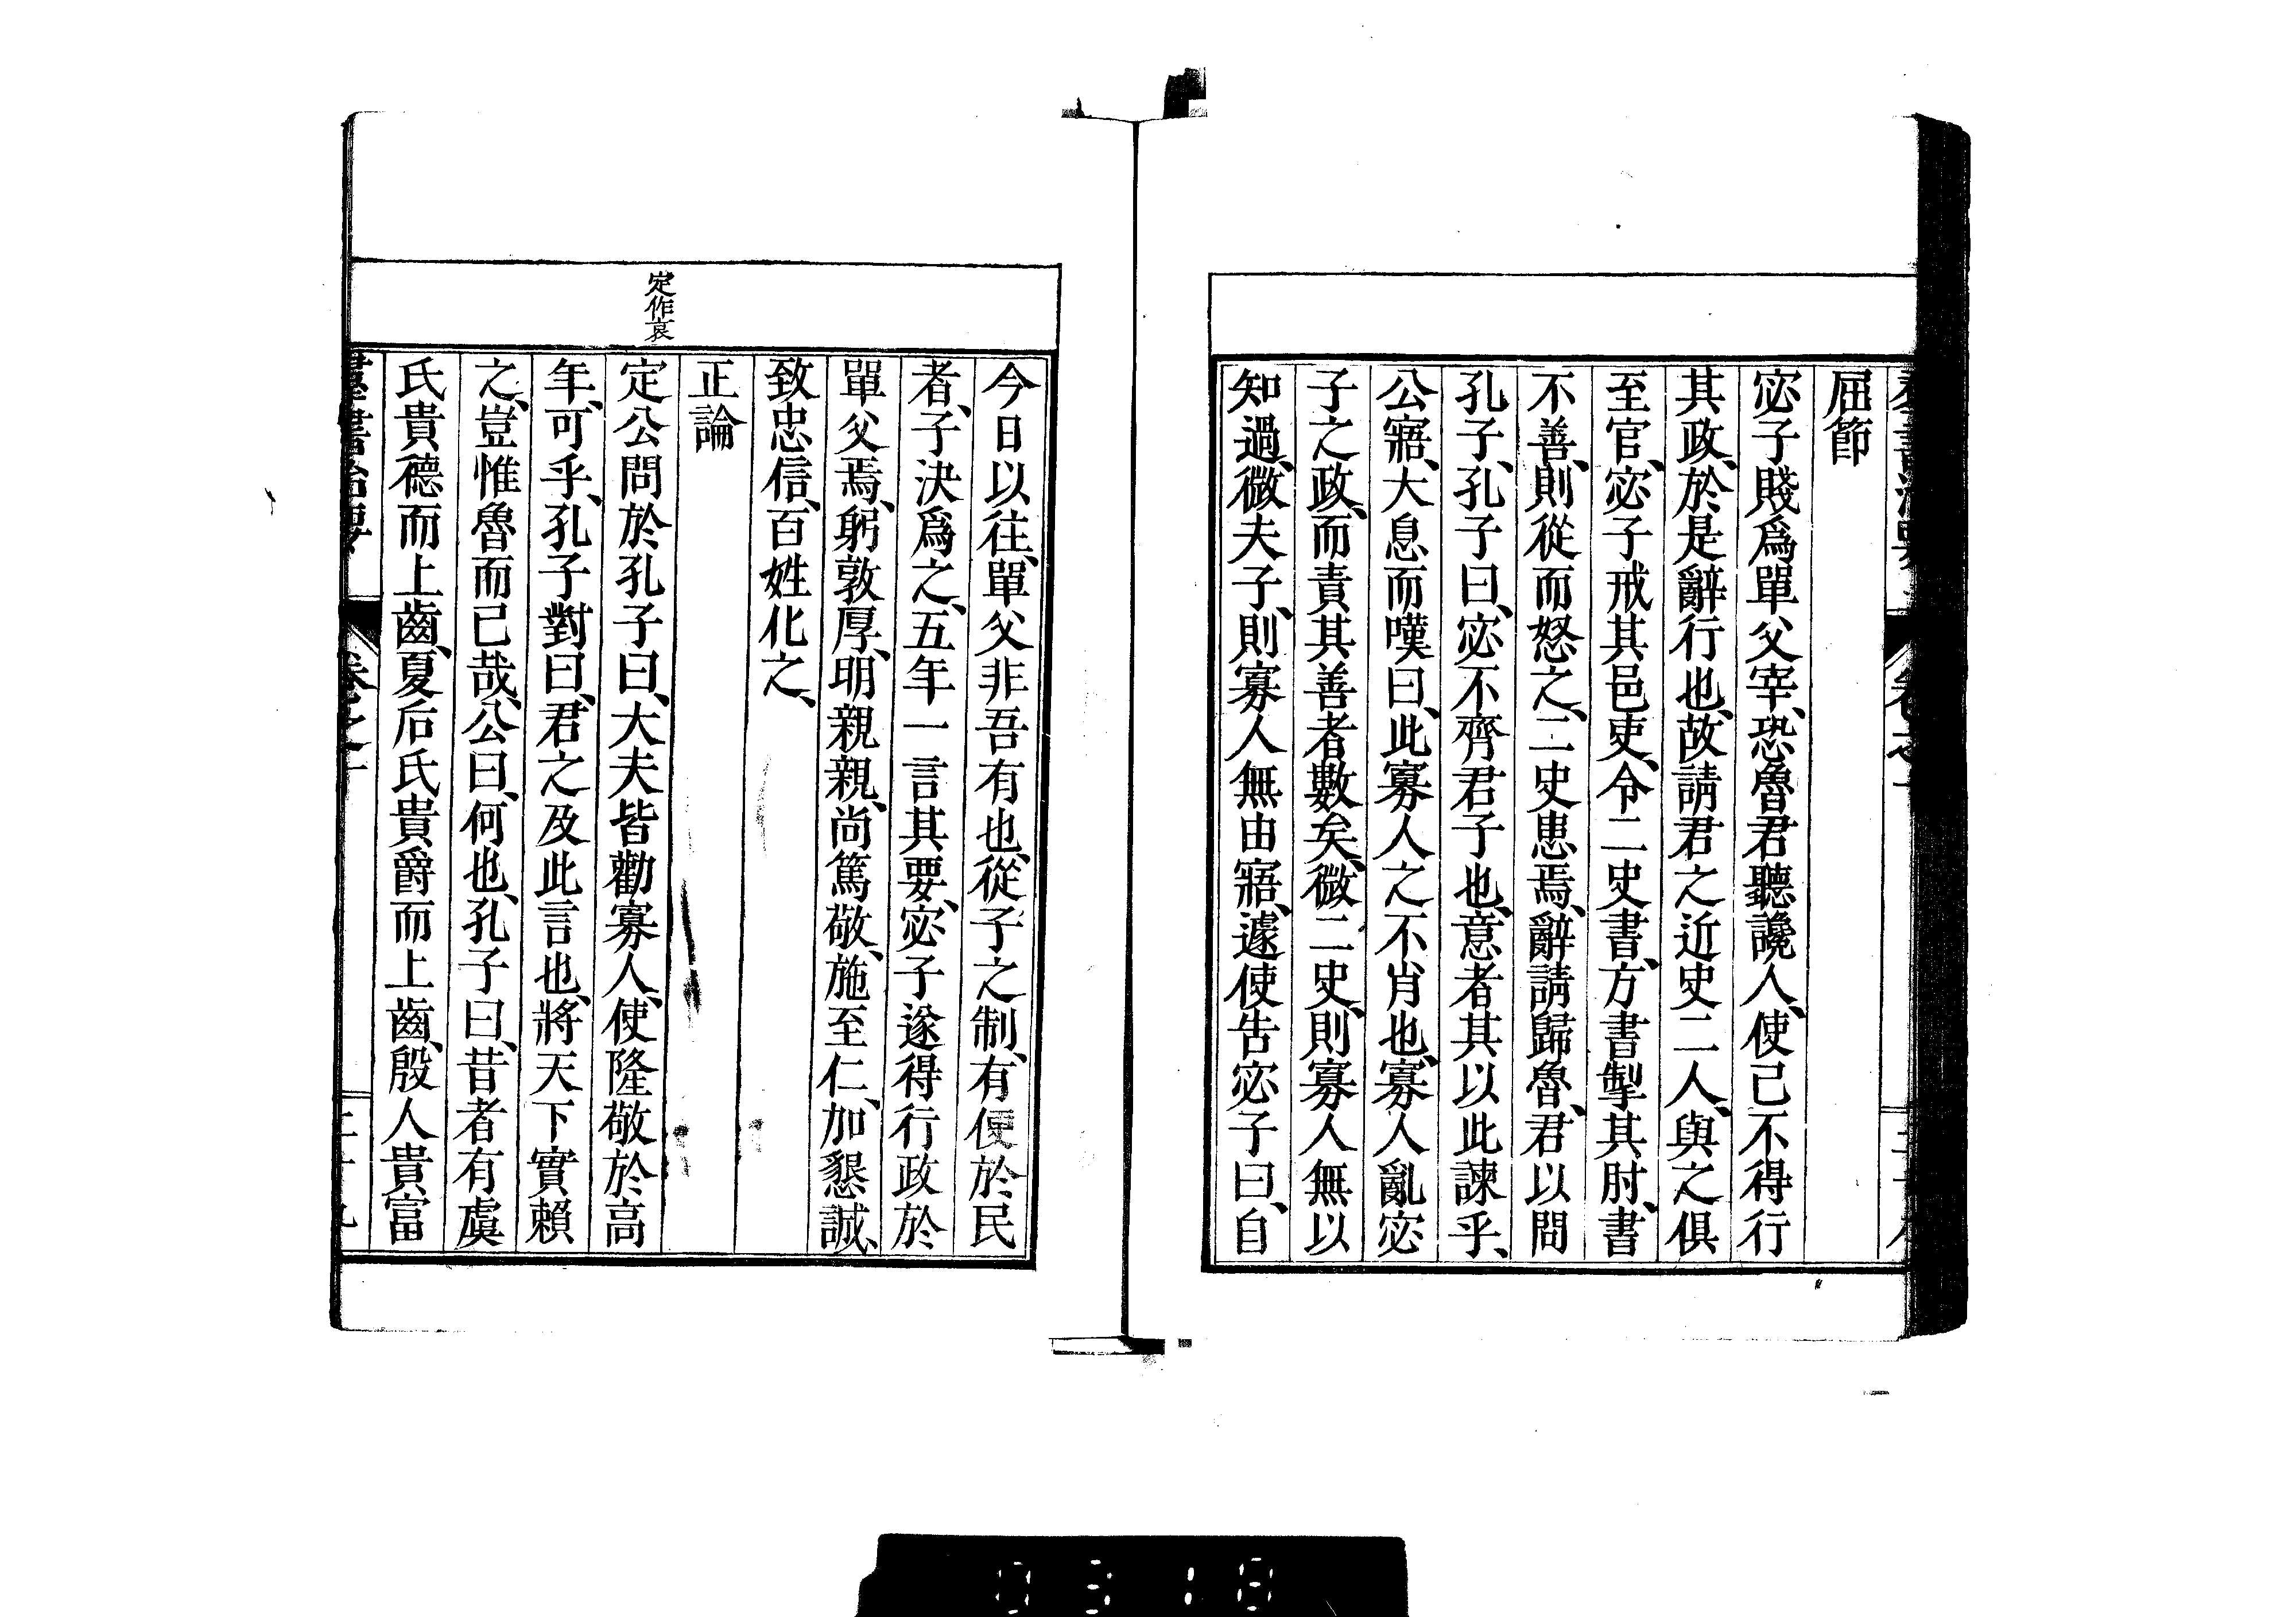 屈節
宓子賤爲單父宰、恐魯君聽讒人、使己不得行
其政、於是辭行也、故請君之近史二人、與之俱
至官、宓子戒其邑吏、令二史書、方書掣其肘、書
不善、則從而怒之、二史患焉、辭請歸魯、君以問
孔子、孔子曰、宓不齊君子也、意者其以此諫乎、
公寤、大息而嘆曰、此寡人之不肖也、寡人亂宓
子之政、而責其善者數矣、微二史、則寡人無以
知過、微夫子、則寡人無由寤、遽使告宓子曰、自
今日以往、單父非吾有也、從子之制、有便於民
者、子決爲之、五年一言其要、宓子遂得行政於
單父焉、躬敦厚、明親親、尚篤敬、施至仁、加懇誠、
致忠信、百姓化之、
正論
定作哀
定公問於孔子曰、大夫皆勸寡人、使隆敬於高
年、可乎、孔子對曰、君之及此言也、將天下實賴
之、豈惟魯而已哉、公曰、何也、孔子曰、昔者有虞
氏貴德而上齒、夏后氏貴爵而上齒、殷人貴富
羣書治要 卷之十
0318